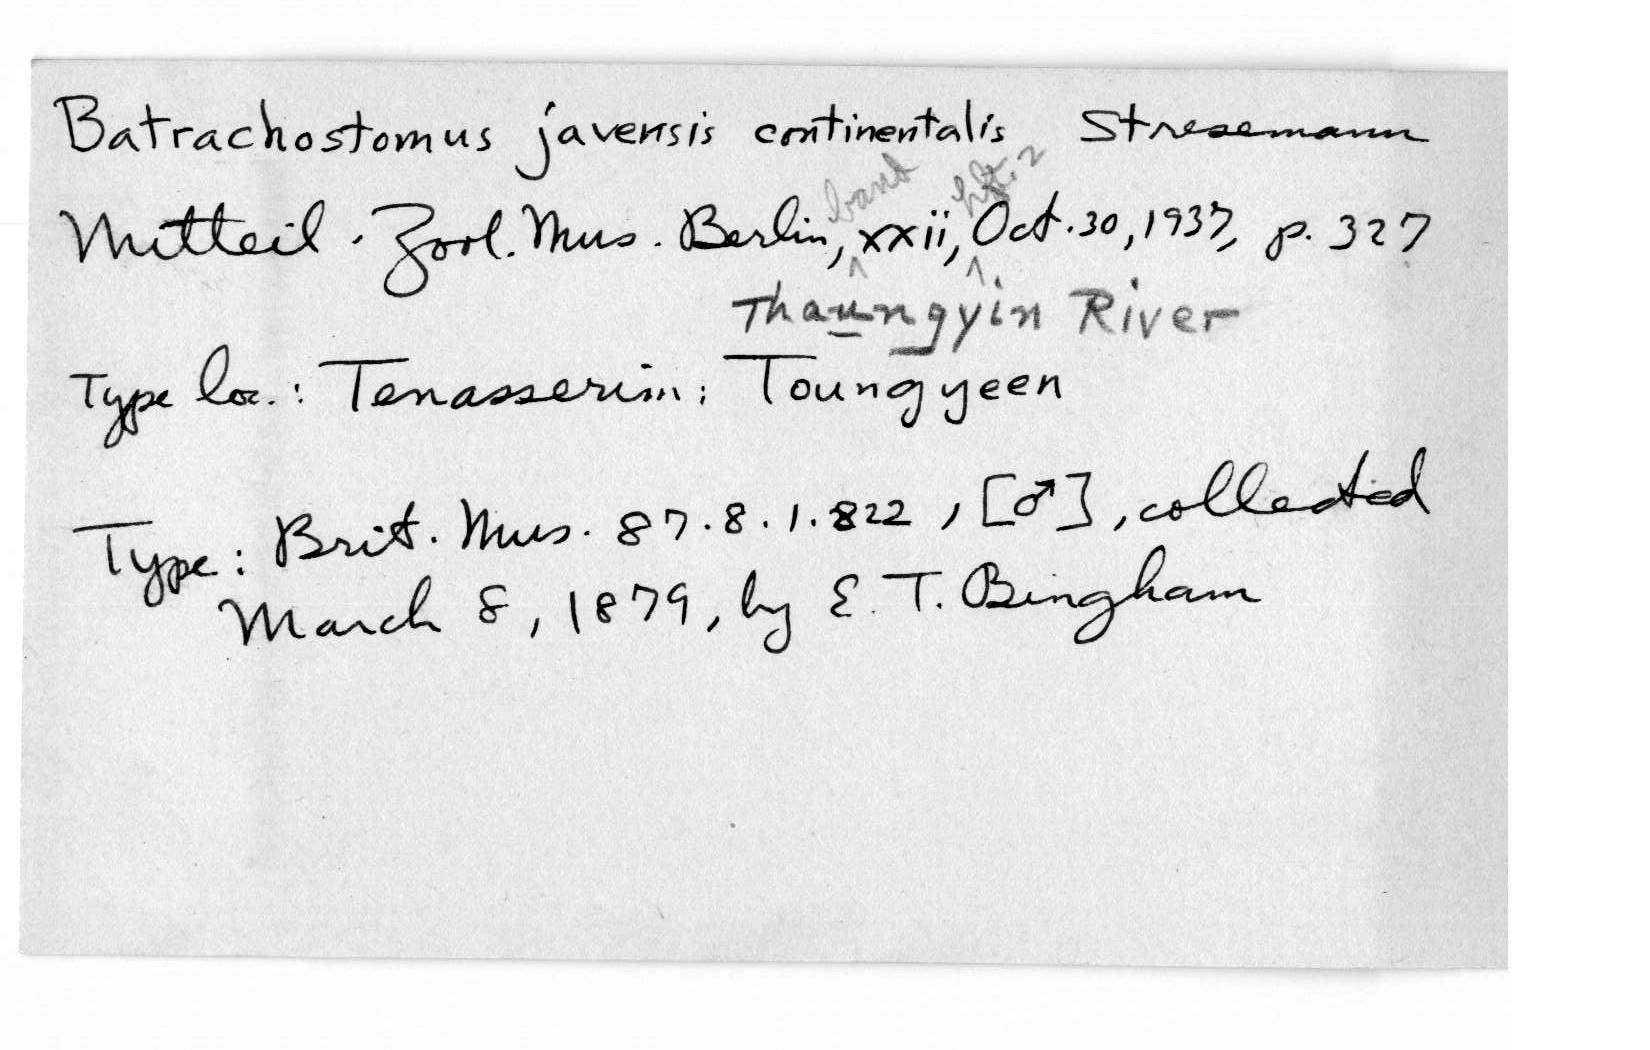 Batrachostomus javensis continentalis Stresemann
band hft. 2
Mitteil. Zool. Mus. Berlin, xxii, Oct. 30, 1937, p. 327
Thaungyin River
Type loc.: Tenasserim: Toungyeen
Type: Brit. Mus. 87.8.1.822, [♂], collected
March 8, 1879, by E. T. Bingham